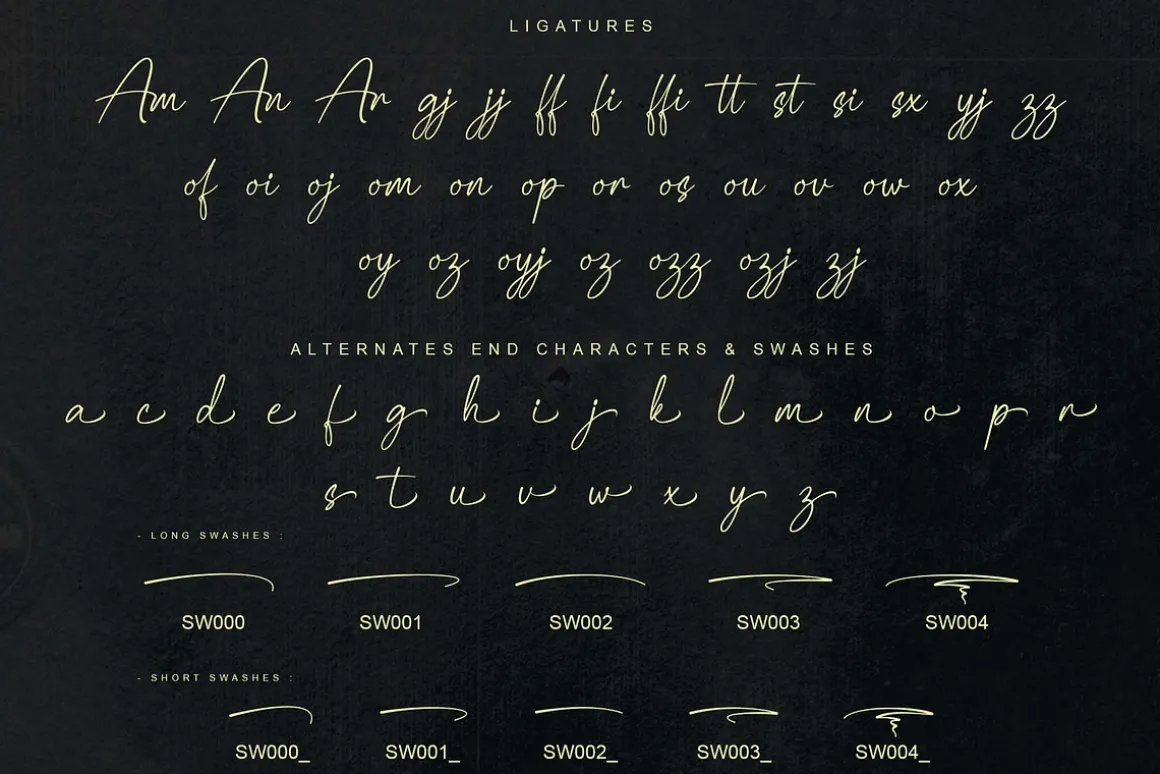 LIGATURES
Am An Ar gj jj ff fi ffi tt st si sx yj zz
of oi oj om on op or os ou ov ow ox
oy oz oyj oz ozz ozj zj
ALTERNATES END CHARACTERS & SWASHES
a c d e f g h i j k l m n o p r
s t u v w x y z
- LONG SWASHES :
SW000 SW001 SW002 SW003 SW004
- SHORT SWASHES :
SW000_ SW001_ SW002_ SW003_ SW004_